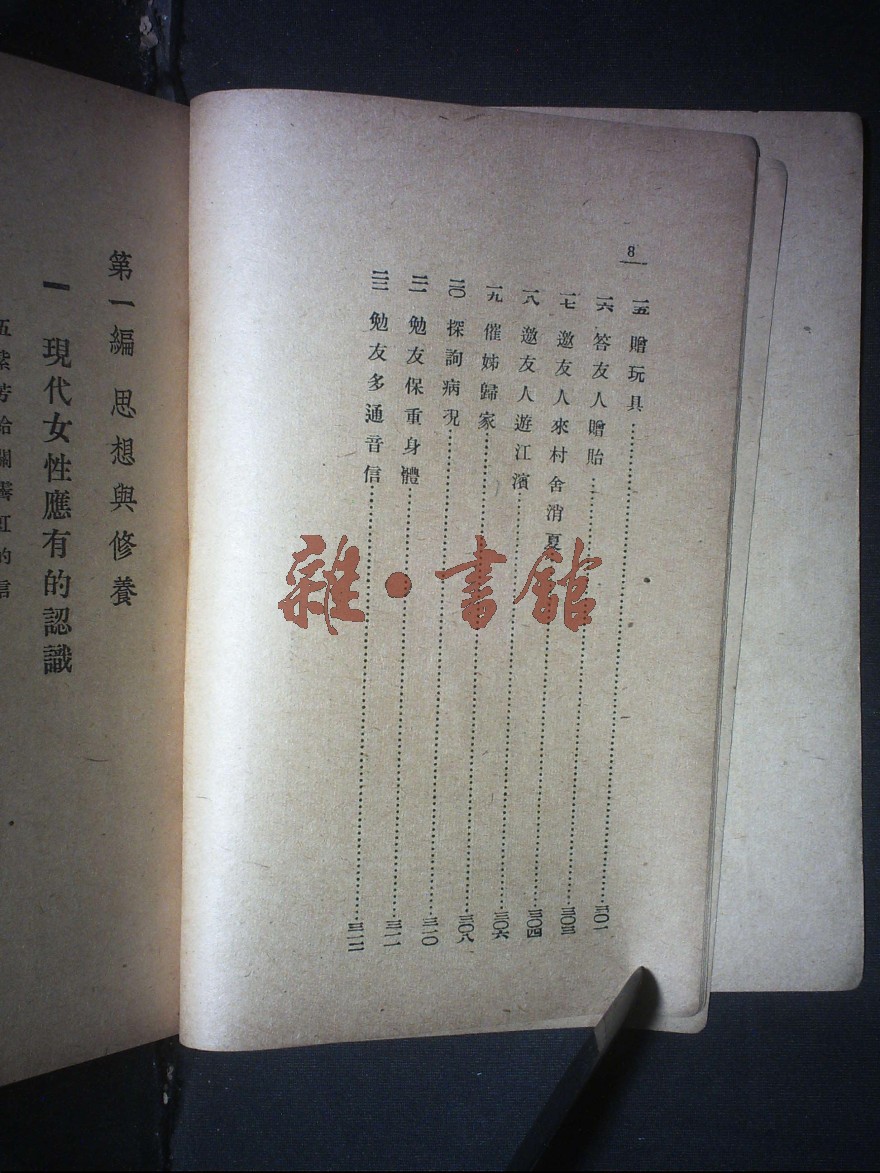 8
一五 贈玩具……三〇一
一六 答友人贈貽……三〇三
一七 邀友人來村舍消夏……三〇四
一八 邀友人遊江濱……三〇六
一九 催姊歸家……三〇八
二〇 探詢病況……三一〇
二一 勉友保重身體……三一一
二二 勉友多通音信……三一二
雜·書館
第一編 思想與修養
一 現代女性應有的認識
紫芳給 的信